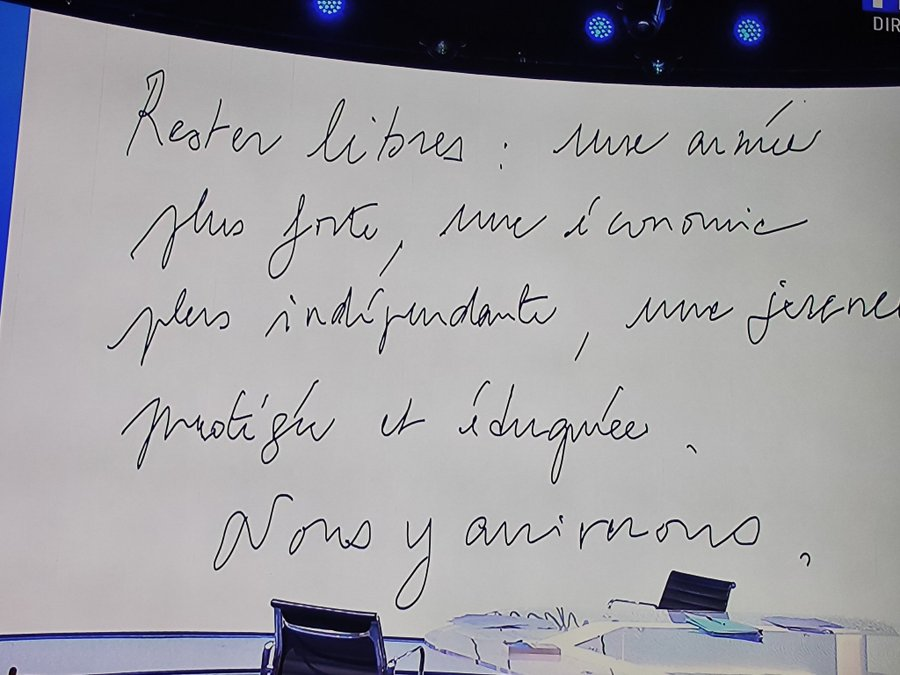 DIR
Rester libres : une armée
plus forte, une économie
plus indépendante, une jeune
protégée et éduquée.
Nous y arriverons.